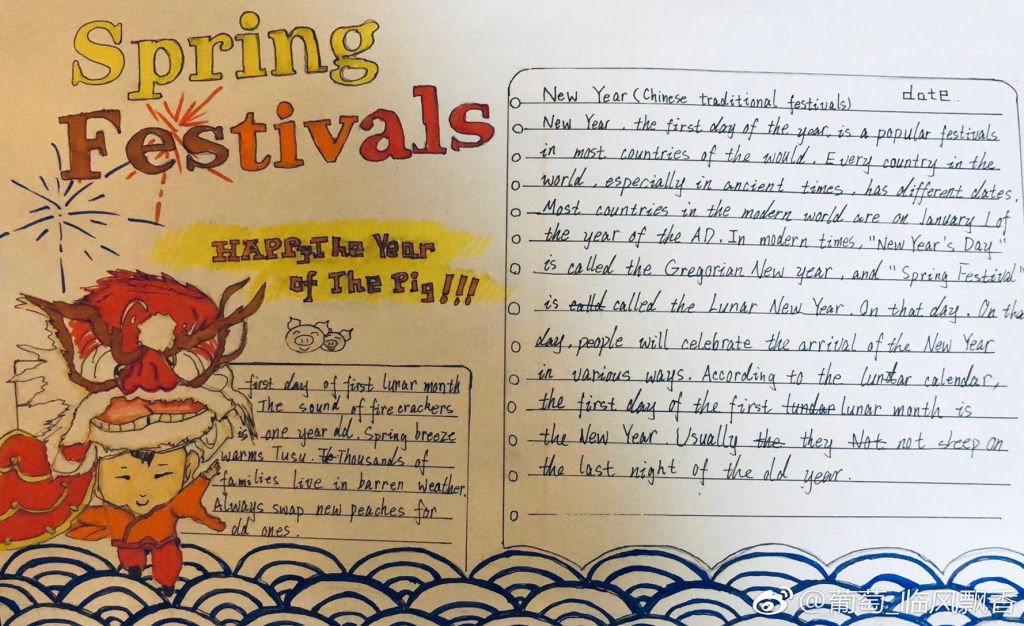 Spring
Festivals
HAPPY The Year
of The Pig!!!
first day of first lunar month
The sound of firecrackers
is one year ad. Spring breeze
warms Tusu. Thousands of
families live in barren weather.
Always swap new peaches for
old ones.
New Year (Chinese traditional festivals) date.
New Year, the first day of the year, is a popular festivals
in most countries of the would. Every country in the
world, especially in ancient times, has different dates.
Most countries in the modern world are on January 1 of
the year of the AD. In modern times, "New Year's Day"
is called the Gregorian New year, and "Spring Festival"
is called the Lunar New Year. On that day. On tha
day, people will celebrate the arrival of the New Year
in various ways. According to the lunar calendar,
the first day of the first lunar month is
the New Year. Usually they not sheep on
the last night of the old year.
@葡萄.临风飘香